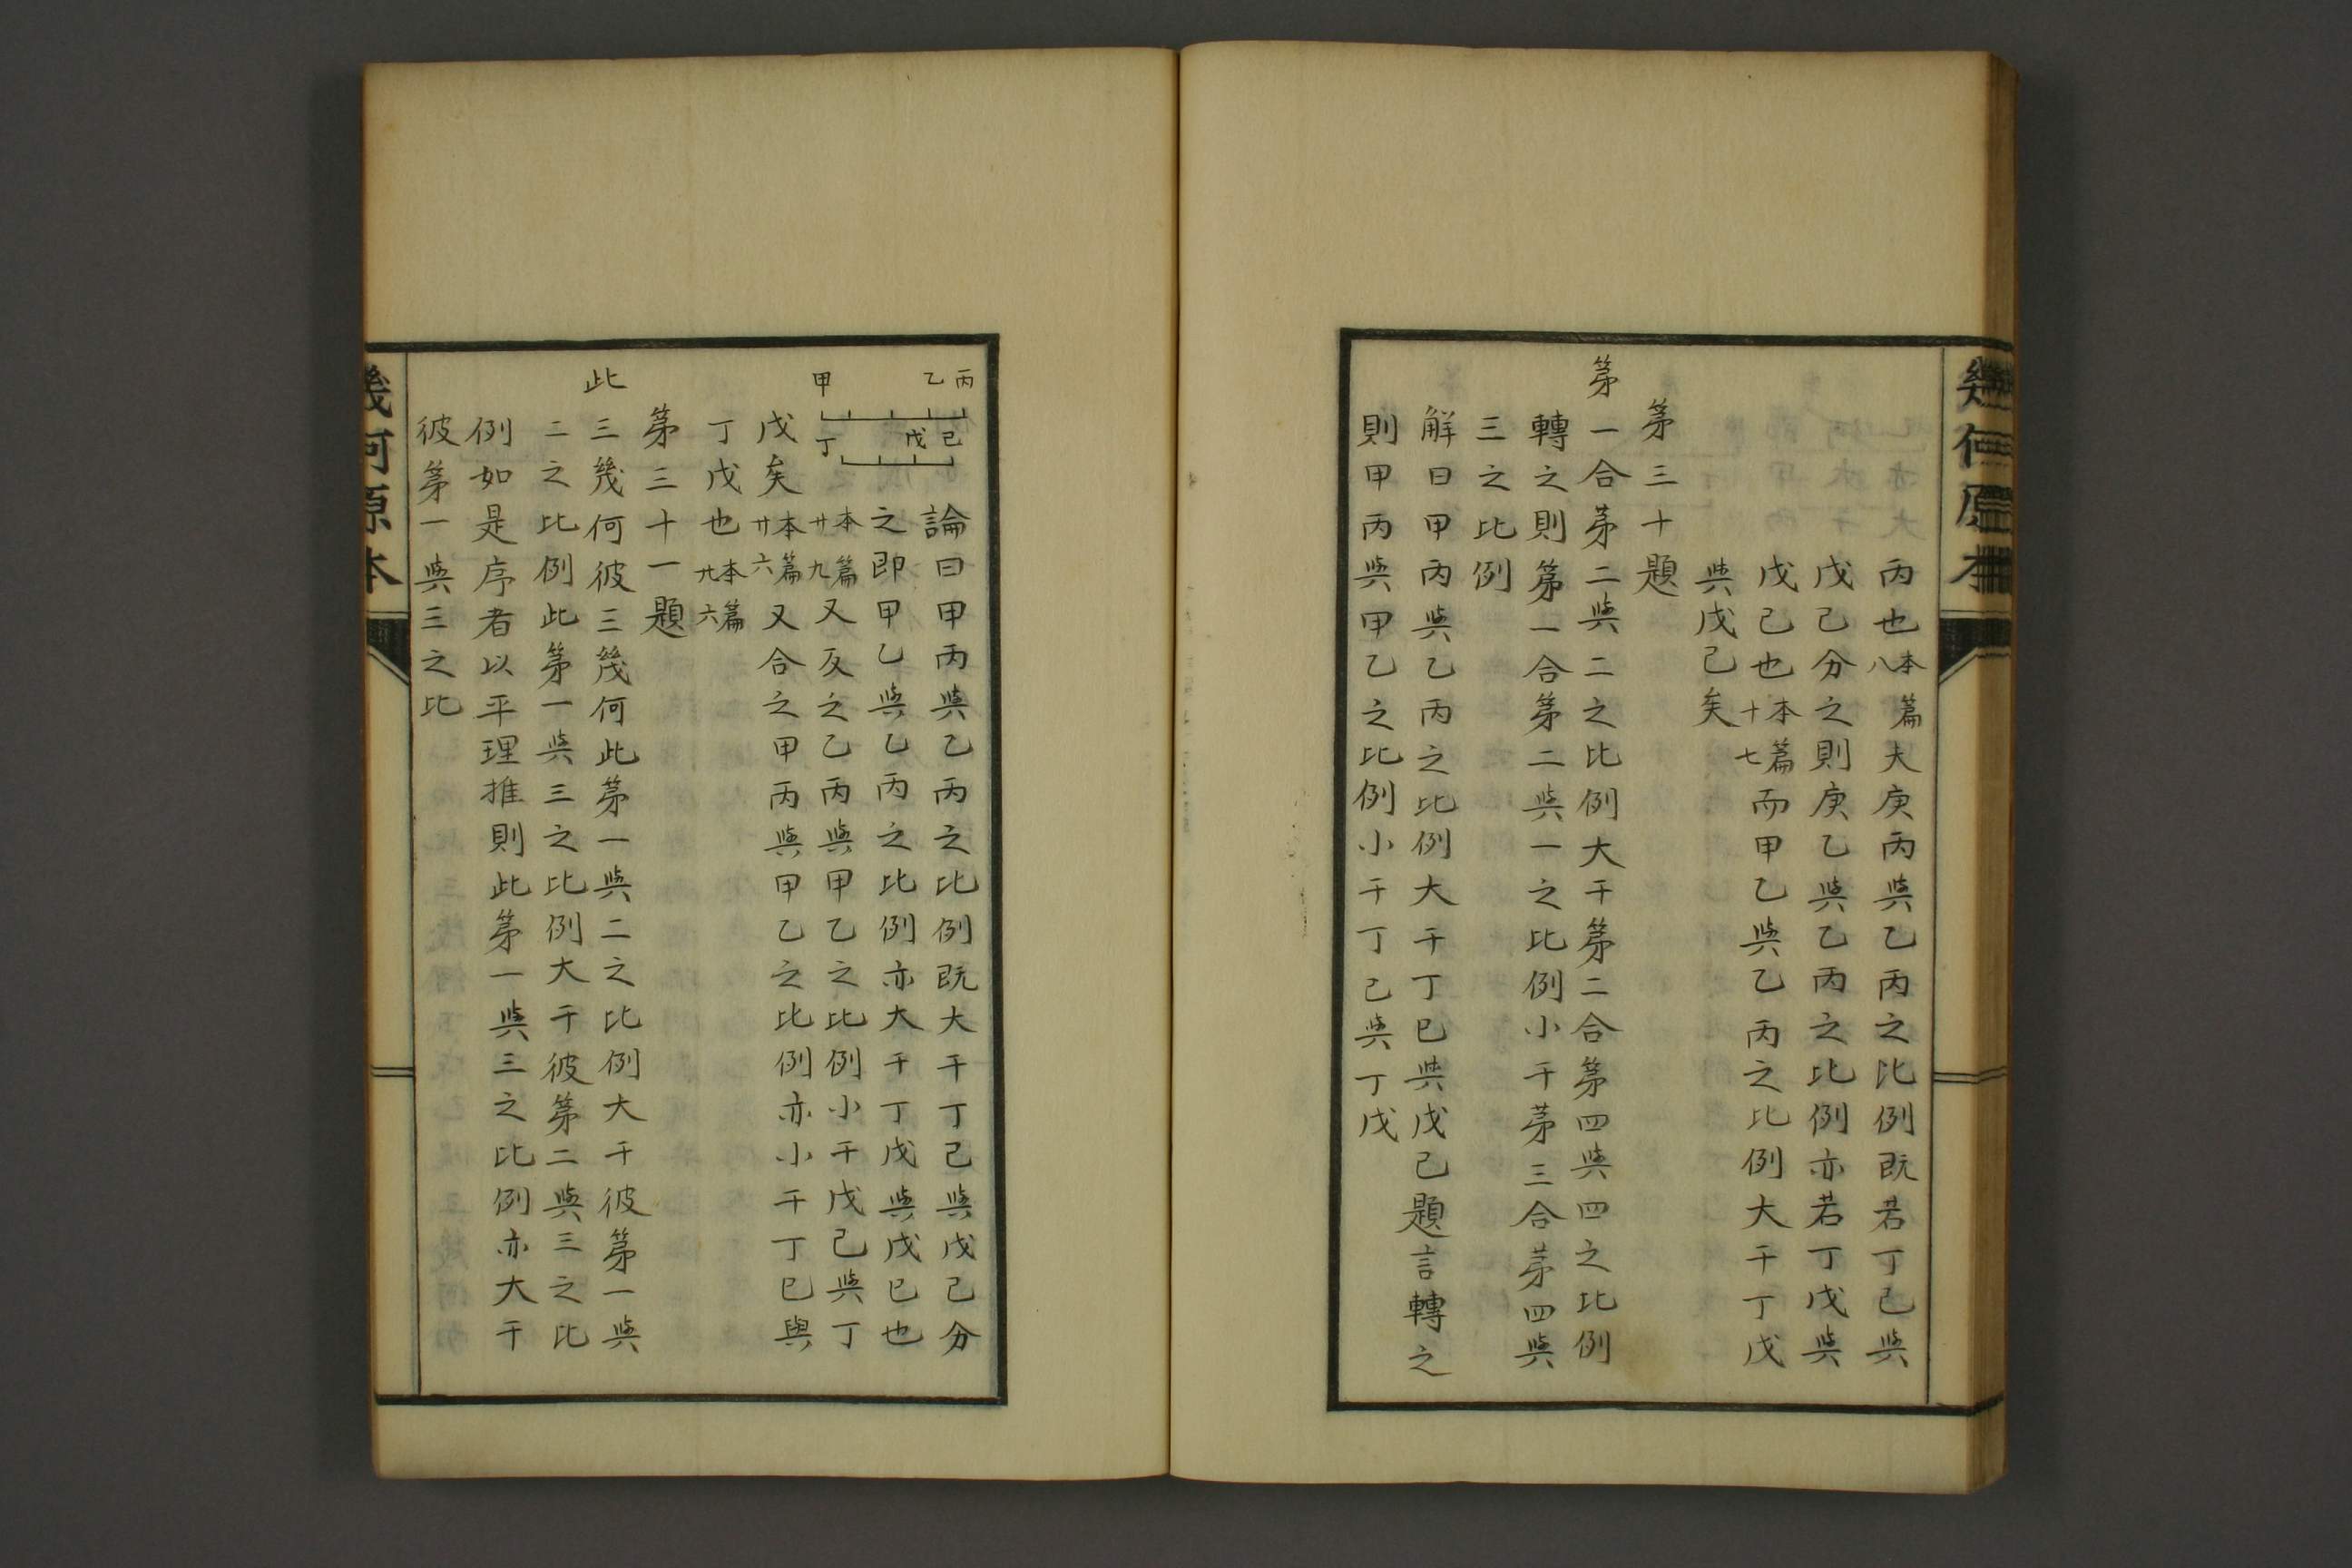 幾何原本
丙也本篇八夫庚丙與乙丙之比例既若丁己與
戊己分之則庚乙與乙丙之比例亦若丁戊與
戊己也本篇十七而甲乙與乙丙之比例大于丁戊
與戊己矣
第三十題
第一合第二與二之比例大于第二合第四與四之比例
轉之則第一合第二與一之比例小于第三合第四與
三之比例
解曰甲丙與乙丙之比例大于丁巳與戊己題言轉之
則甲丙與甲乙之比例小于丁己與丁戊
丙
乙
甲
己
戊
丁
論曰甲丙與乙丙之比例既大于丁己與戊己分
之即甲乙與乙丙之比例亦大于丁戊與戊巳也
本篇廿九又反之乙丙與甲乙之比例小于戊己與丁
戊矣本篇廿六又合之甲丙與甲乙之比例亦小于丁巳與
丁戊也本篇廿六
第三十一題
此三幾何彼三幾何此第一與二之比例大于彼第一與
二之比例此第一與三之比例大于彼第二與三之比
例如是序者以平理推則此第一與三之比例亦大于
彼第一與三之比
幾何原本